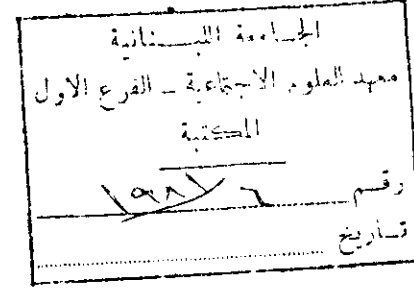 الجامعة اللبنانية
معهد العلوم الاجتماعية - الفرع الاول
المكتبة
رقم ١٩٨٧ ٦
تاريخ